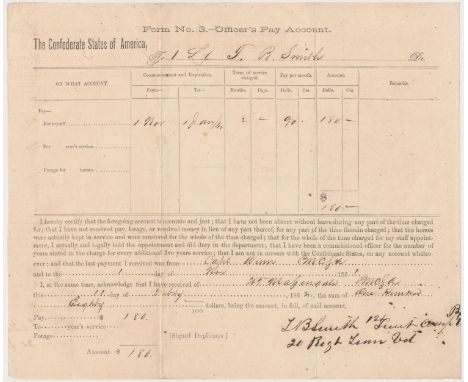 Form No. 3.—Officer's Pay Account.
The Confederate States of America,
To 1 Lt T. B. Smith Dr.
ON WHAT ACCOUNT. Commencement and Expiration. Term of service charged. Pay per month. Amount. Remarks.
From— To— Months. Days. Dolls. Cts. Dolls. Cts.
Pay—
For myself 1 Nov 1 Jany 2 — 90 180 —
For year's service
Forage for horses
$
180 —
I hereby certify that the foregoing account is accurate and just; that I have not been absent without leave during any part of the time charged
for; that I have not received pay, forage, or received money in lieu of any part thereof, for any part of the time therein charged; that the horses
were actually kept in service and were mustered for the whole of the time charged; that for the whole of the time charged for my staff appoint-
ment, I actually and legally held the appointment and did duty in the department; that I have been a commissioned officer for the number of
years stated in the charge for every additional five years service; that I am not in arrears with the Confederate States, on any account whatso-
ever; and that the last payment I received was from Capt
and to the 1 day of Nov 186
I, at the same time, acknowledge that I have received of
this 11 day of 186 2, the sum of One Hundred
Eighty /100 dollars, being the amount, in full, of said account.
Pay $ 180.
To year's service
Forage
Amount $ 180.
[Signed Duplicates.]
T B Smith 1st Lieut comp B
20 Regt Tenn Vol